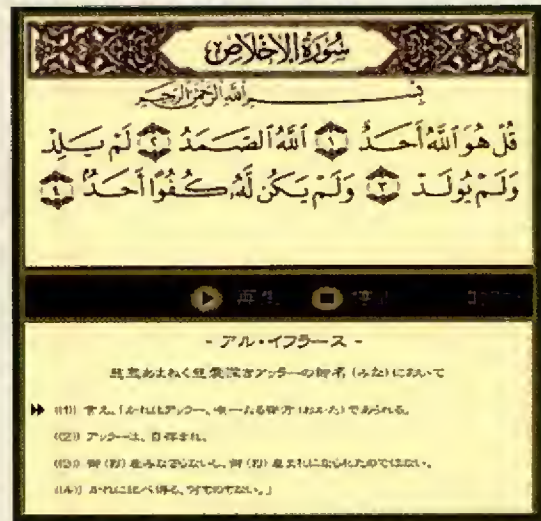 سُورَةُ الْإِخْلَاصِ
بِسْمِ اللَّهِ الرَّحْمَٰنِ الرَّحِيمِ
قُلْ هُوَ ٱللَّهُ أَحَدٌ ١ ٱللَّهُ ٱلصَّمَدُ ٢ لَمْ يَلِدْ
وَلَمْ يُولَدْ ٣ وَلَمْ يَكُن لَّهُۥ كُفُوًا أَحَدٌۢ ٤
再生
- アル・イフラース -
慈悲あまねく慈愛深きアッラーの御名 (みな) において
((1)) 言え、「かれはアッラー、唯一なる御方 (おかた) であられる。
((2)) アッラーは、自存され、
((3)) 御 (お) 産みなさらないし、御 (お) 産まれになられたのではない、
((4)) かれに比べ得る、何ものもない。」